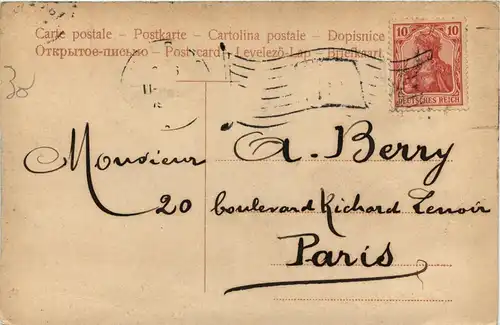 Carte postale – Postkarte – Cartolina postale – Dopisnice
Открытое письмо – Postcard – Levelező-Lap – Briefkaart
10 10
DEUTSCHES REICH
Monsieur A. Berry
20 boulevard Richard Lenoir
Paris